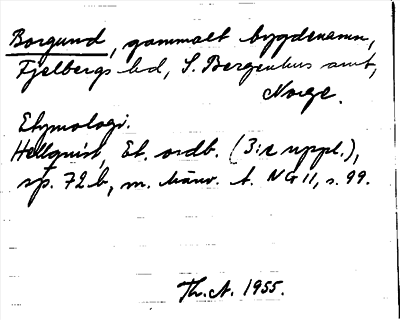 Borgund, gammalt bygdenamn,
Fjelbergs hd, S. Bergenhus amt,
Norge.
Etymologi.
Hellquist, Et. ordb. (3:e uppl.),
sp. 72 b, m. hänv. t. NG 11, s. 99.
Th. A. 1955.